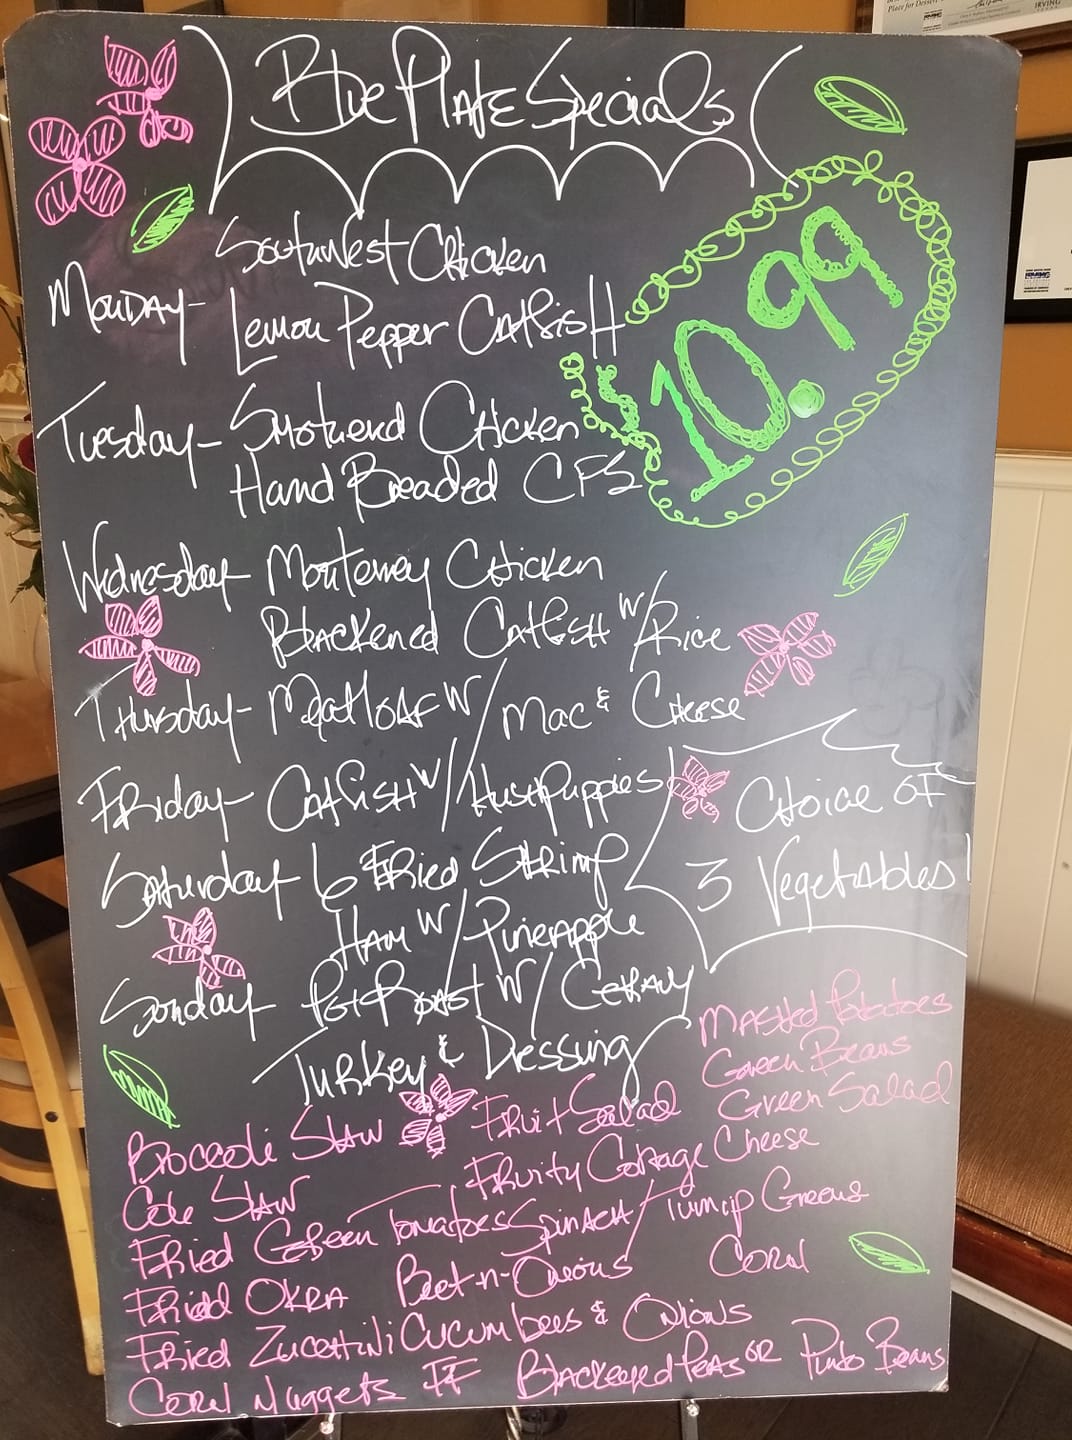 Place for Dessert
IRVING
Blue Plate Specials
$10.99
Southwest Chicken
Monday- Lemon Pepper Catfish
Tuesday- Smotherd Chicken
Hand Breaded CFS
Wednesday- Monterrey Chicken
Blackened Catfish w/ Rice
Thursday- Meatloaf w/ Mac & Cheese
Friday- Catfish w/ Hushpuppies
Saturday- 6 Fried Shrimp
Ham w/ Pineapple
Sunday- Pot Roast w/ Gravy
Turkey & Dressing
Choice of
3 Vegetables!
Mashed Potatoes
Green Beans
Green Salad
Broccoli Slaw
Fruit Salad
Cole Slaw
Fruity Cottage Cheese
Fried Green Tomatoes
Spinach/Turnip Greens
Fried Okra
Beet-n-Onions
Corn
Fried Zucchini
Cucumbers & Onions
Corn Nuggets
FF
Blackeyed Peas or Pinto Beans